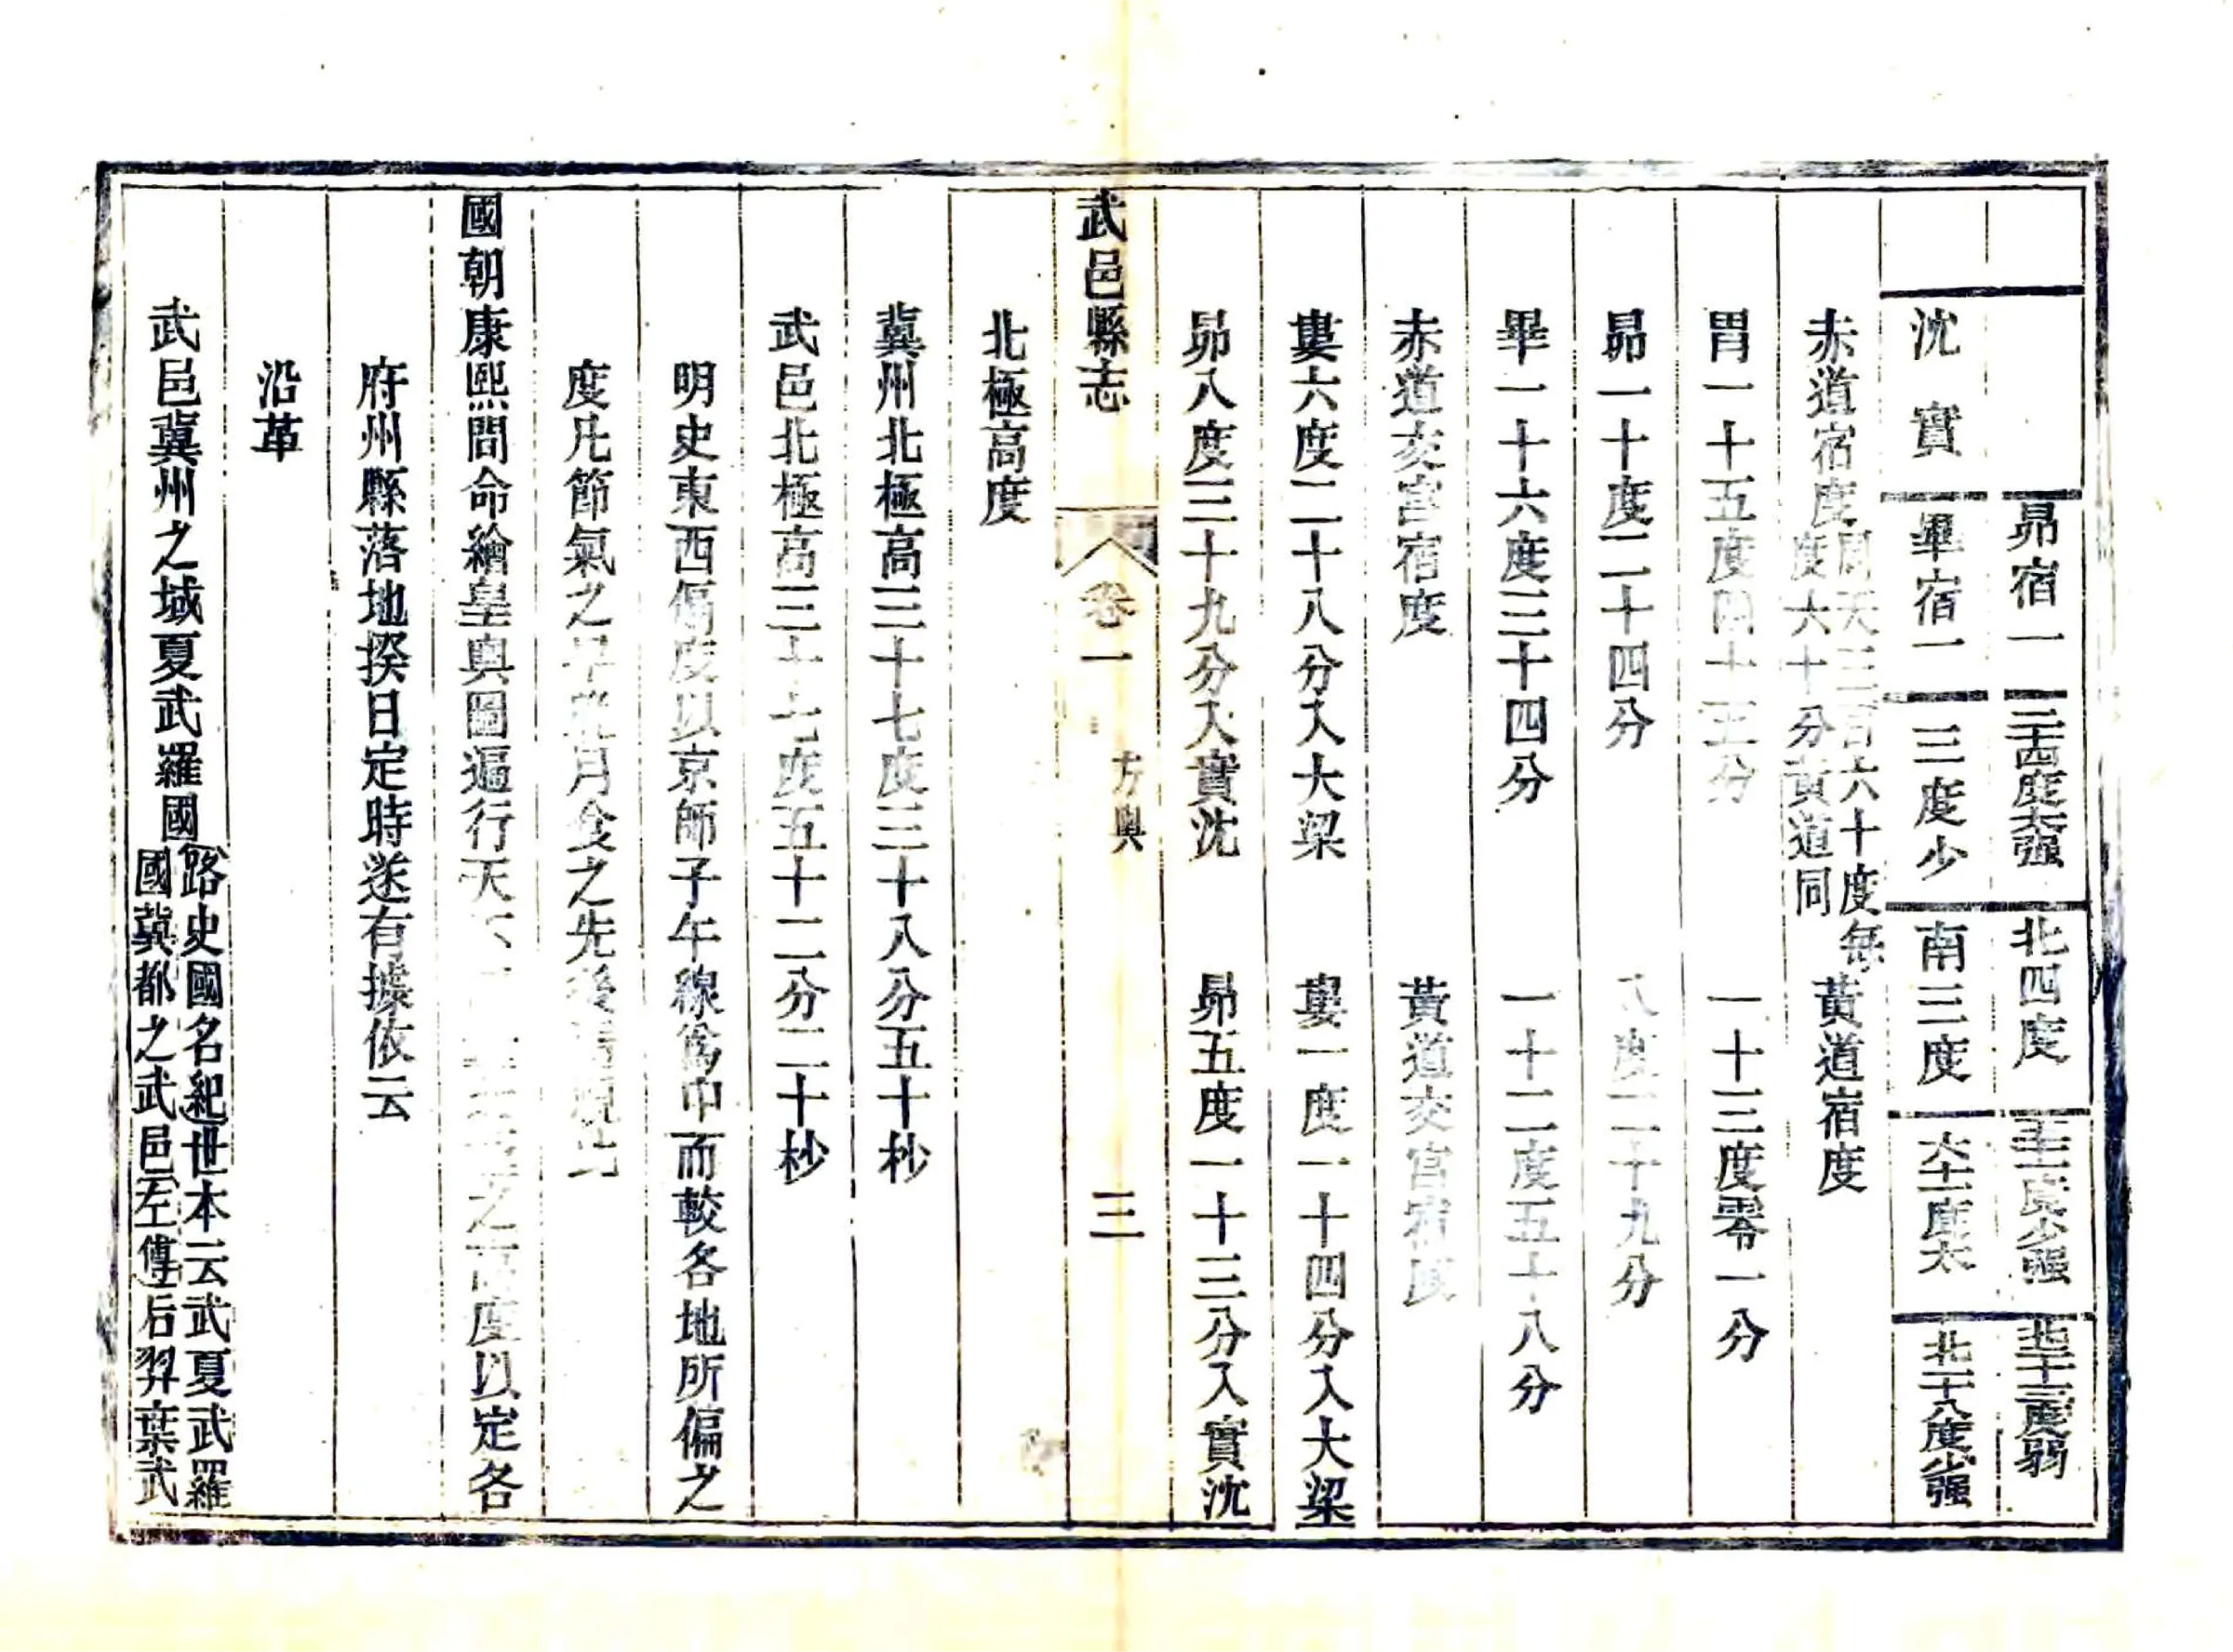 昴宿一 二十四度太强 北四度 五十一度少强 北十三度弱
沈實 畢宿一 三度少 南三度 六十一度太 北一十八度少强
赤道宿度 周天三百六十度每度六十分黃道同 黃道宿度
胃一十五度四十五分 一十三度零一分
昴一十度二十四分 八度二十九分
畢一十六度三十四分 一十二度五十八分
赤道交宮宿度 黃道交宮宿度
婁六度二十八分入大梁 婁一度一十四分入大梁
昴八度三十九分入實沈 昴五度一十三分入實沈
武邑縣志 卷一 方輿 三
北極高度
冀州北極高三十七度三十八分五十杪
武邑北極高三十七度五十二分二十杪
明史東西偏度以京師子午線爲中而較各地所偏之
度凡節氣之早晚月食之先後
國朝康熙間命繪皇輿圖遍行天下 之高度以定各
府州縣落地揆日定時遂有據依云
沿革
武邑冀州之域夏武羅國 路史國名紀世本云武夏武羅
國冀都之武邑左傳后羿棄武